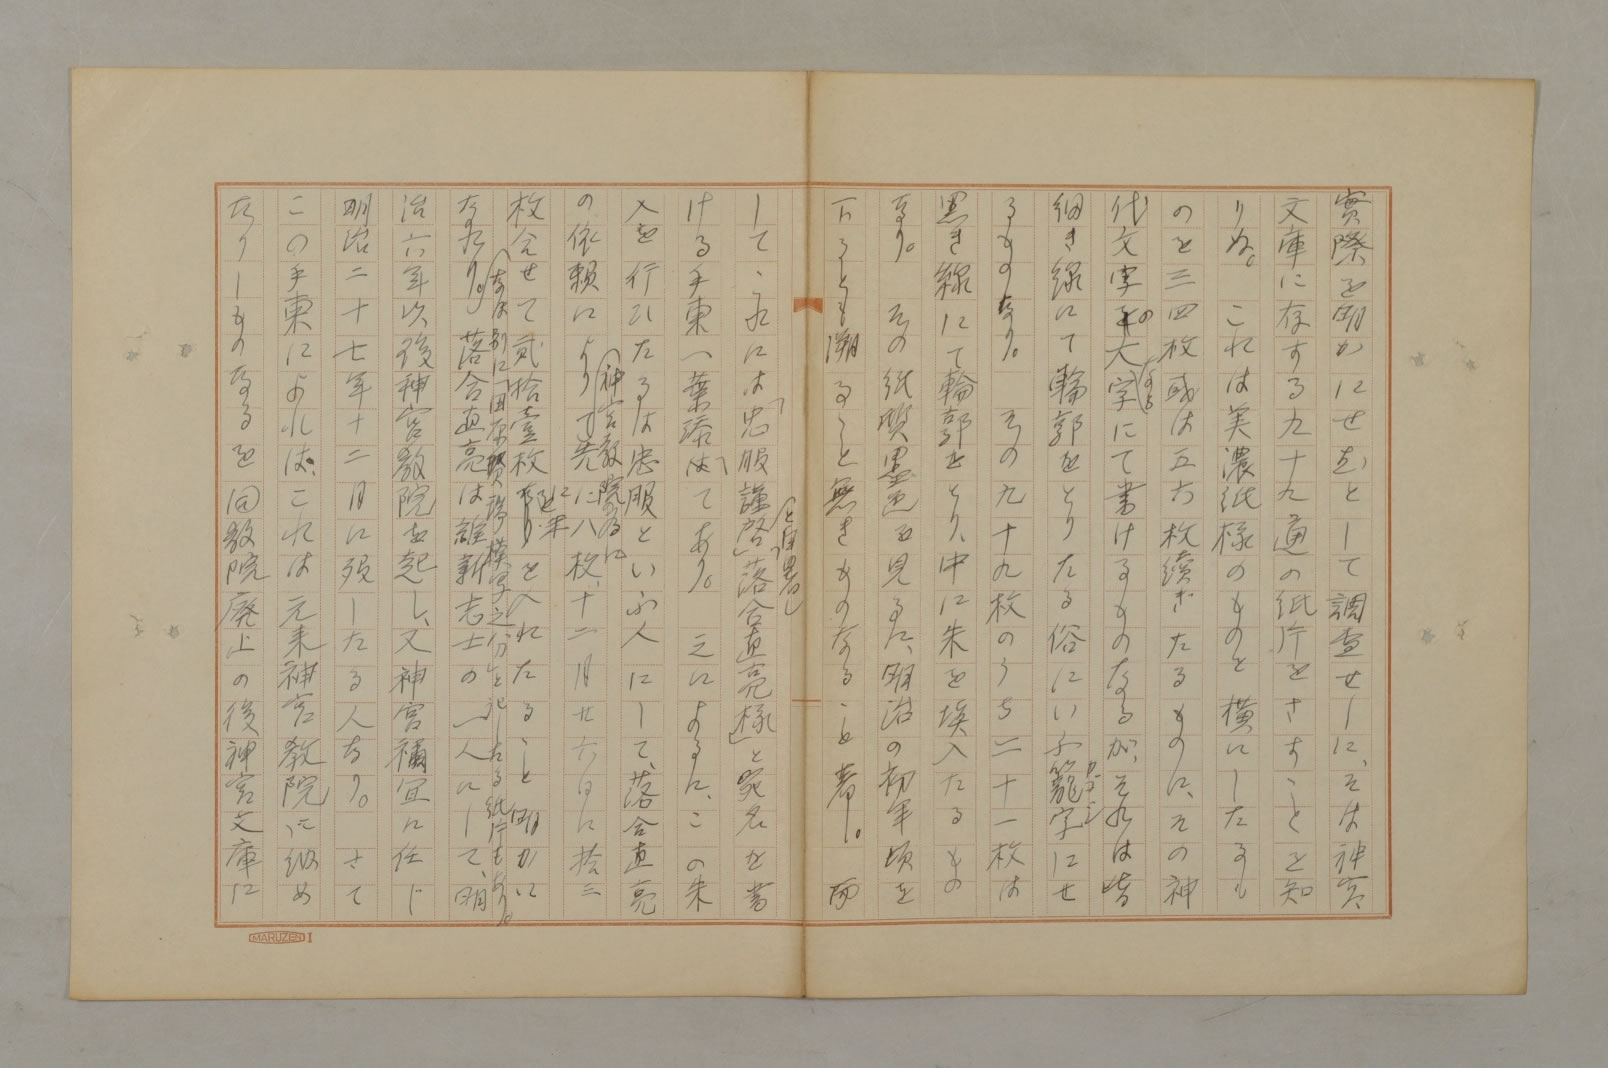 實際を明かにせむとして調査せしに、そは神宮
文庫に存する九十九通の紙片をさすことを知
りぬ。これは美濃紙様のものを横にしたるも
のを三四枚或は五六枚續ぎたるものに、その神
代文字の大字なるにて書けるものなるが、それは皆
細き線にて輪郭をとりたる俗にいふ籠字にせ
カゴジ
るものなり。その九十九枚のうち二十一枚は
黒き線にて輪郭をとり、中に朱を填入たるもの
なり。その紙質墨色を見るに、明治の初年頃を
下るとも溯ること無きものなること著し。而
して、これには「忠服謹啓」「落合直亮様」と宛名を書
と自署し
ける手柬一葉添はてあり。之によるに、この朱
入を行ひたるは忠服といふ人にして、落合直亮
の依頼によりて先に八枚、十二月廿六日に拾三
神宮教院の為に
枚合せて貳拾壹枚に朱をいれたること明かに
なれり。落合直亮は維新志士の一人にして、明
なほ別に田原賛璋模写之分と記したる紙片もあり。
治六年以後神宮教院を起し、又神宮禰宜に任じ
明治二十七年十二月に歿したる人なり。さて
この手柬によれば、これは元来神宮教院に納め
たりしものなるを同教院廃止の後神宮文庫に
MARUZEN 1